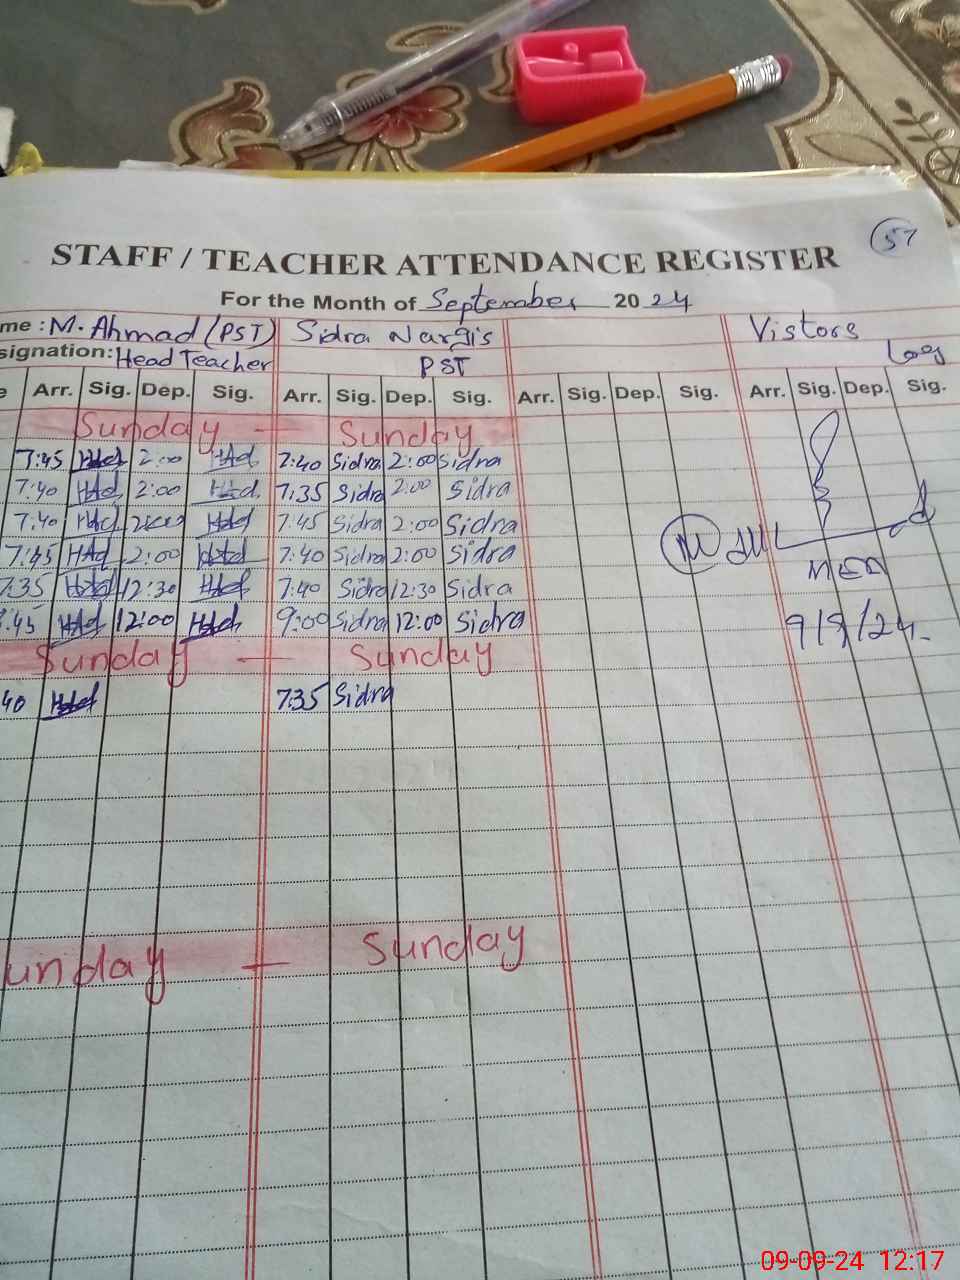 57
STAFF / TEACHER ATTENDANCE REGISTER
For the Month of September 20 24
me : M. Ahmad (PST) Sidra Nargis Vistors
signation: Head Teacher PST Log
e Arr. Sig. Dep. Sig. Arr. Sig. Dep. Sig. Arr. Sig. Dep. Sig. Arr. Sig. Dep. Sig.
Sunday — Sunday
7:45 2:00 7:40 Sidra 2:00 Sidra
7:40 2:00 7:35 Sidra 2:00 Sidra
7:40 2:00 7:45 Sidra 2:00 Sidra
7:45 2:00 7:40 Sidra 2:00 Sidra
7:35 12:30 7:40 Sidra 12:30 Sidra
:45 12:00 9:00 Sidra 12:00 Sidra
MEA
9/9/24
Sunday — Sunday
40 7:35 Sidra
unday — Sunday
09-09-24 12:17